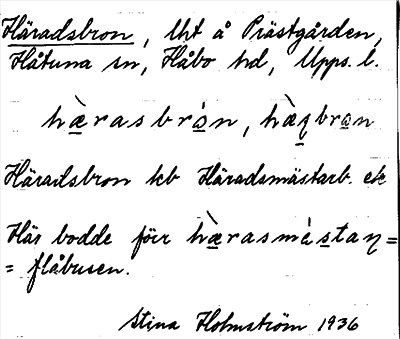 Häradsbron, lht å Prästgården,
Håtuna sn, Håbo hd, Upps. l.
hæ̀rasbrón, hæ̀qbron
Häradsbron lcb Häradsmästarb. ek
Här bodde förr hæ̀rasmástaɳ=
= flåbusen.
Stina Holmström 1936